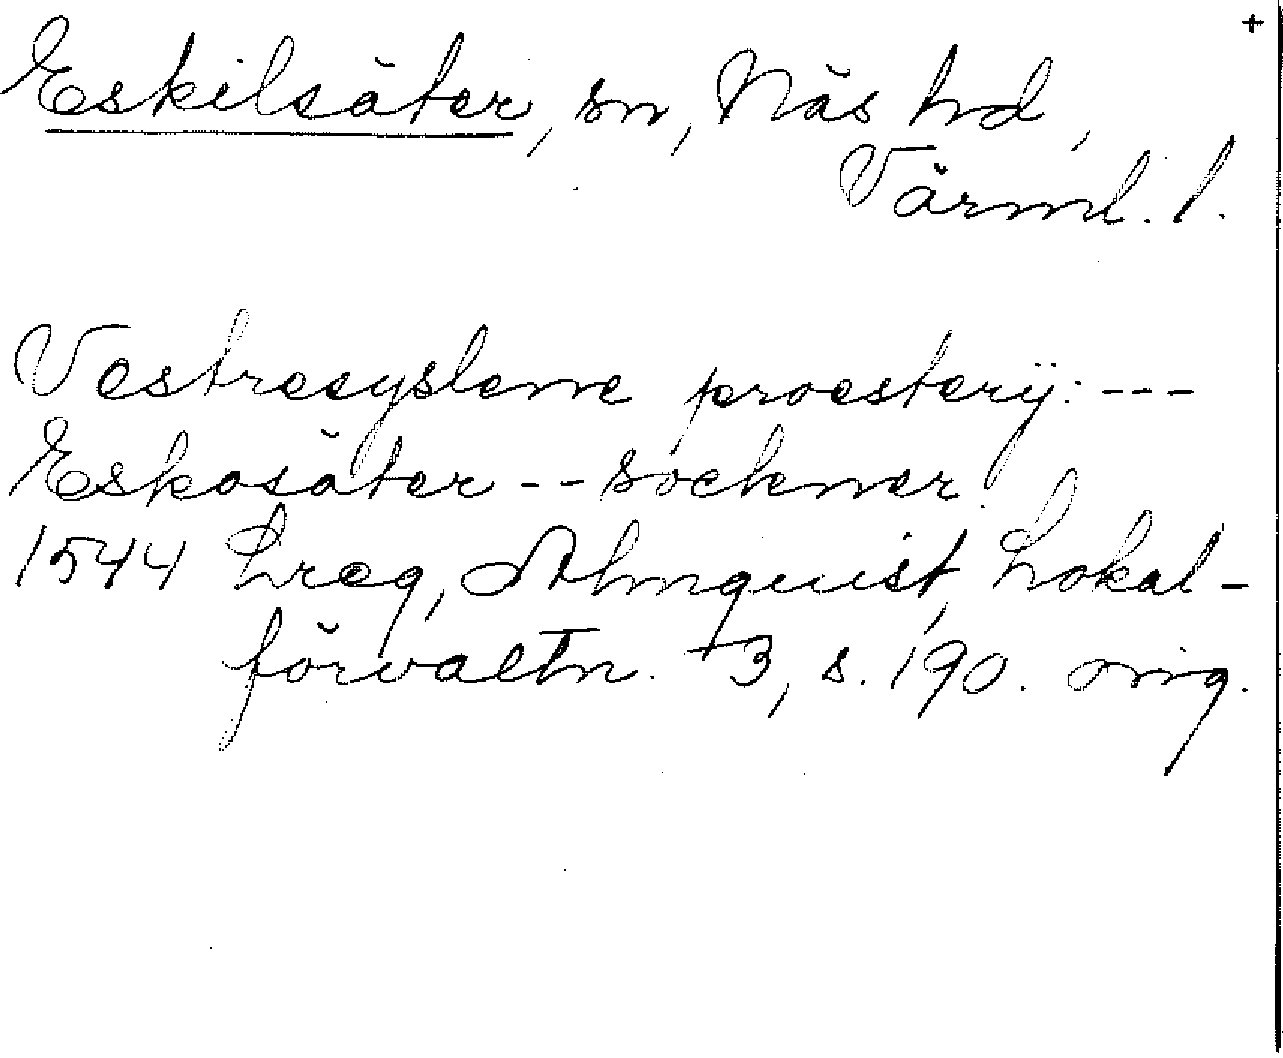 +
Eskilsäter, sn, Näs hd,
Värml. l.
Vestresyslene proesterij: ---
Eskosäter -- sockner.
1544 Lreg, Almquist, Lokal-
förvaltn. +3, s. 190. orig.